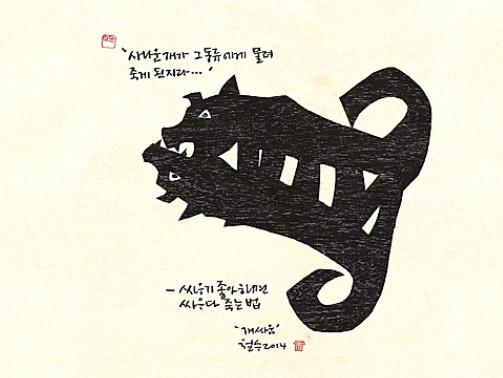 "사나운개가 그동류에게 물려
죽게 된지라..."
- 싸우기 좋아하면
싸우다 죽는법
'개싸움'
철수 2014